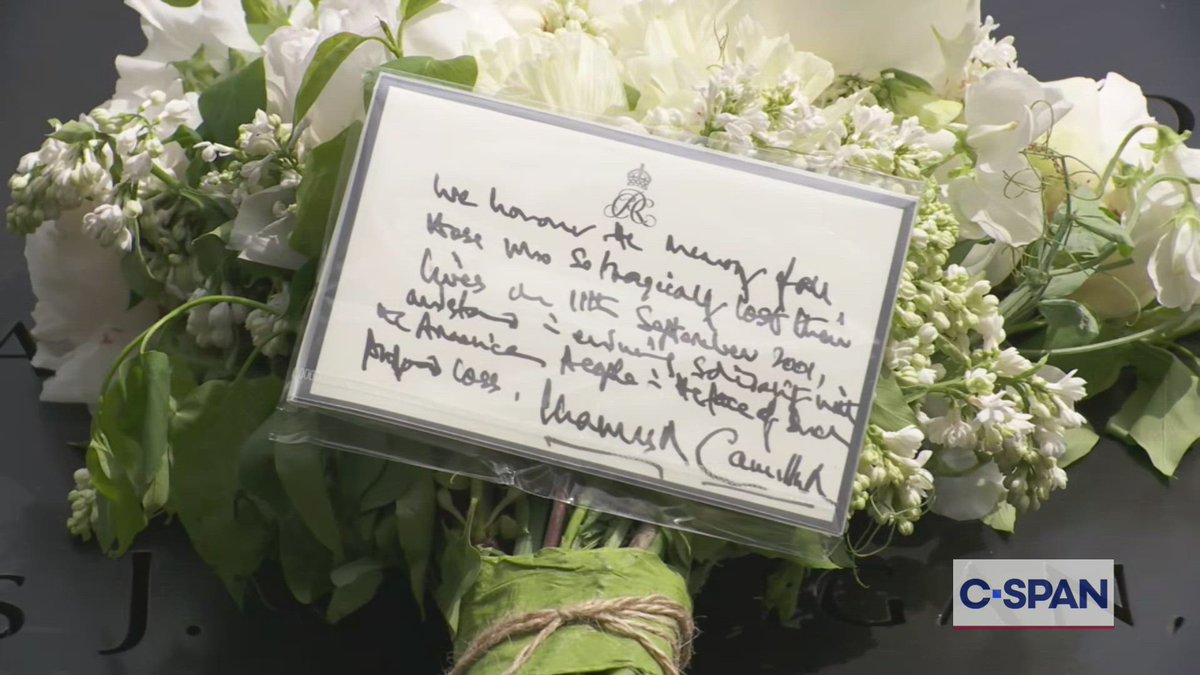 We honour the memory of all
those who so tragically lost their
lives on 11th September 2001,
and stand in enduring solidarity with
the American People in the face of such
profound loss.
Charles R Camilla R
C-SPAN
S J.